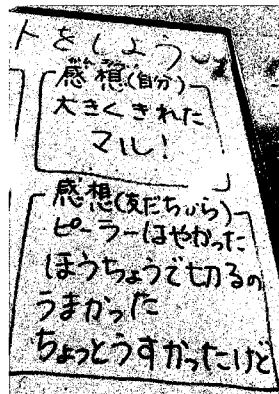 トをしよう
感想(自分)
大きくきれた
マル!
感想(友だちから)
ピーラーはやかった
ほうちょうで切るの
うまかった
ちょっとうすかったけど